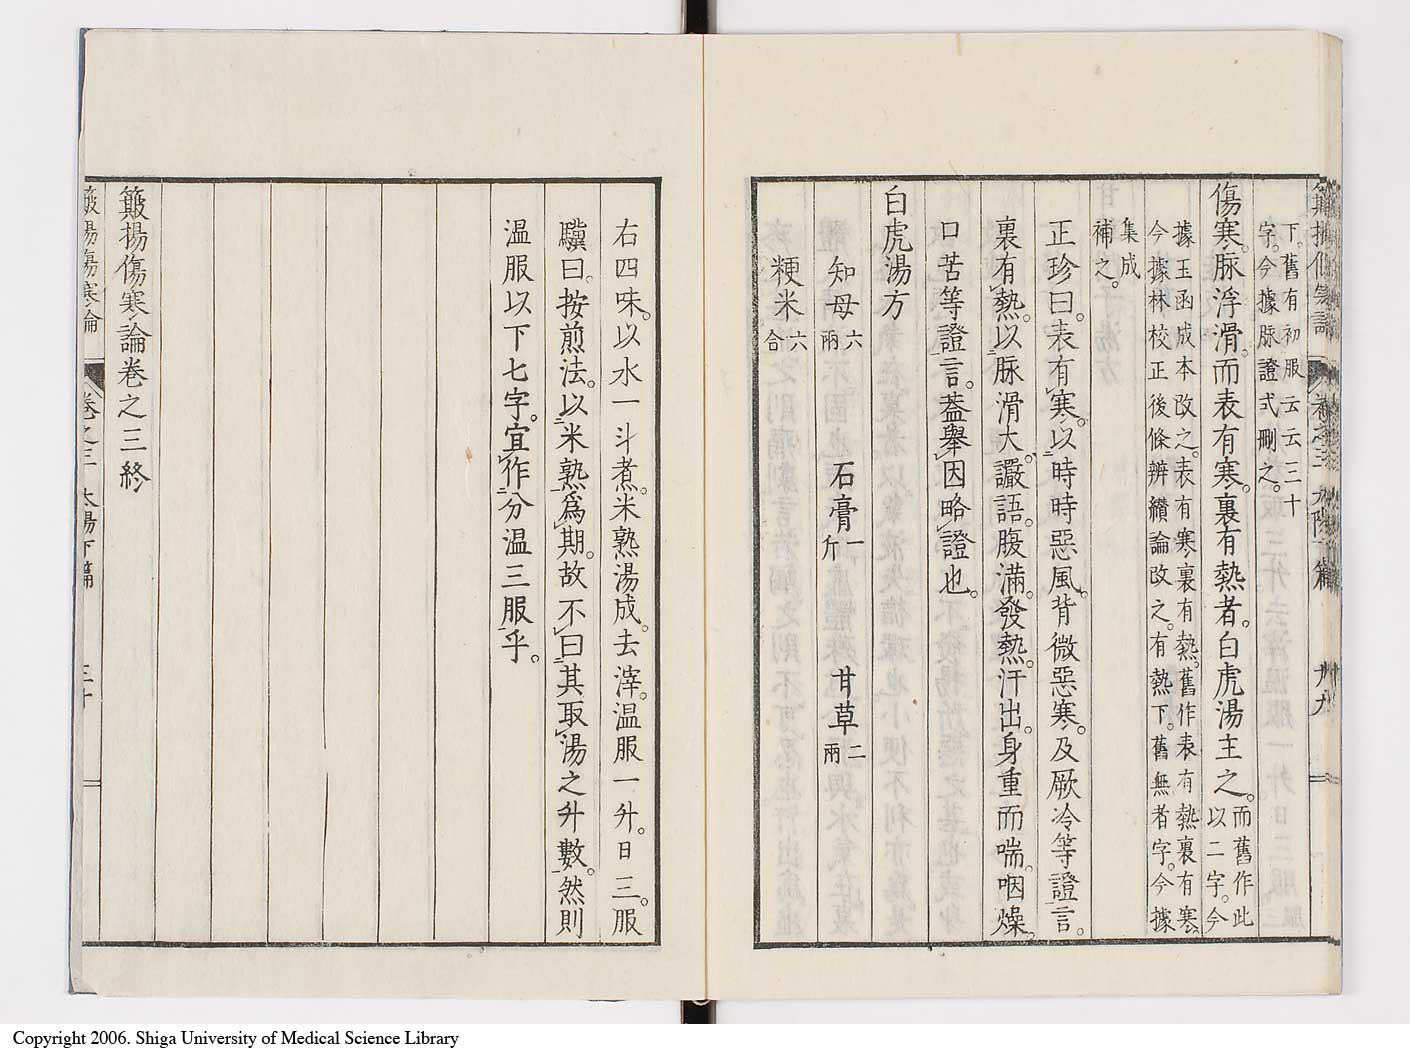 下。舊有初服云云三十
字。今據脉證式刪之。
傷寒。脉浮滑。而表有寒。裏有熱者。白虎湯主之。而舊作此
以二字。今
據玉函成本改之。表有寒裏有熱。舊作表有熱裏有寒。
今據林校正後條辨纘論改之。有熱下。舊無者字。今據
集成
補之。
正珍曰。表有寒。以時時惡風。背微惡寒。及厥冷等證言。
裏有熱。以脉滑大。讝語。腹滿。發熱。汗出。身重而喘。咽燥。
口苦等證言。蓋舉因略證也。
白虎湯方
知母六兩 石膏一斤 甘草二兩
粳米六合
右四味。以水一斗煮。米熟湯成。去滓。溫服一升。日三。服
驥曰。按煎法。以米熟爲期。故不曰其取湯之升數。然則
溫服以下七字。宜作分溫三服乎。
簸揚傷寒論卷之三終
簸揚傷寒論 卷之三 太陽下篇 三十